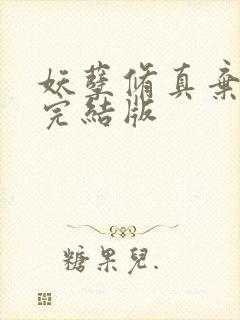 妖孽脩真棄
完結版
糖果兒.